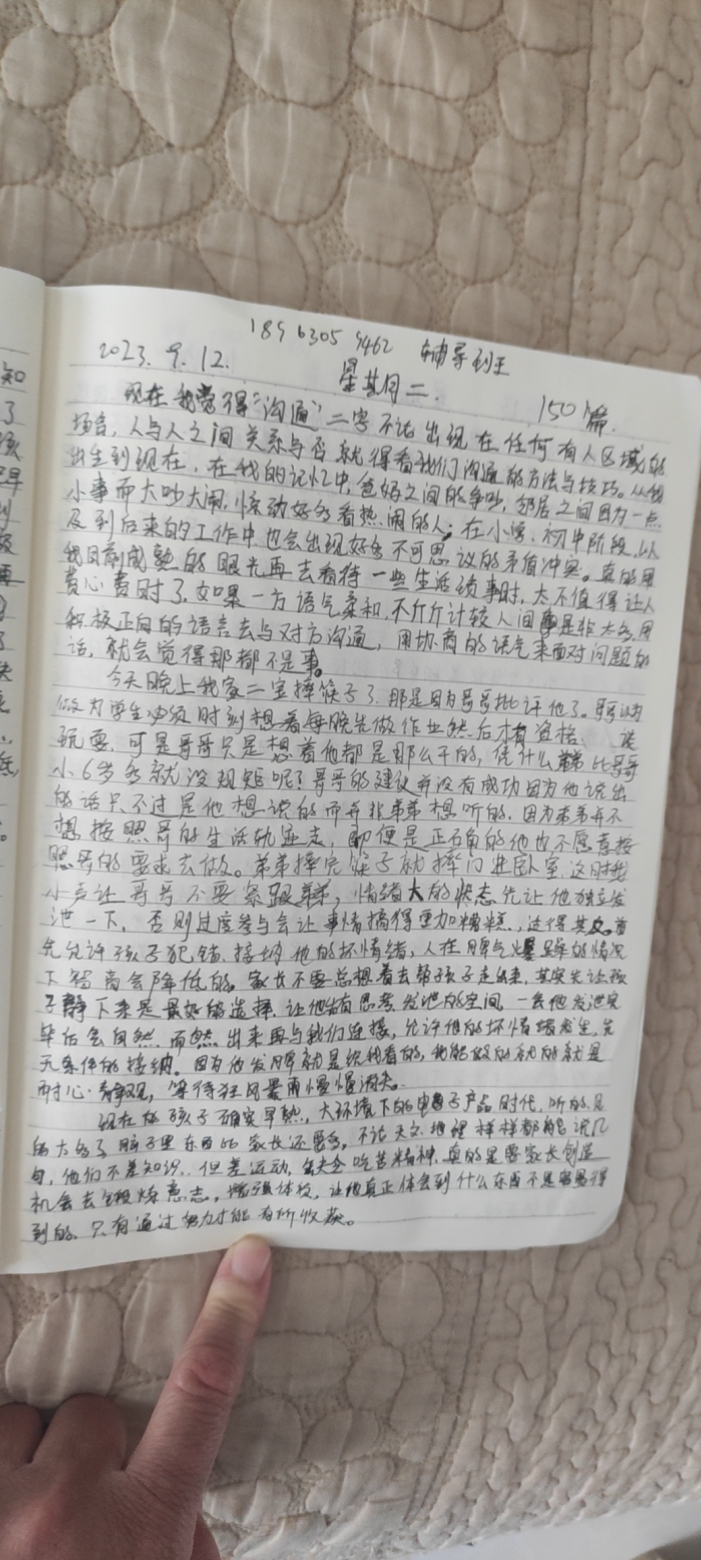 189 6305 9462 辅导班王
2023. 9. 12. 星期二.
150篇.
现在我觉得“沟通”二字不论出现在任何有人区域的
场合, 人与人之间关系与否就得看我们沟通的方法与技巧。从
出生到现在, 在我的记忆中, 爸妈之间的争吵, 邻居之间因为一点
小事而大吵大闹, 惊动好多看热闹的人; 在小学、初中阶段, 以
及到后来的工作中也会出现好多不可思议的矛盾冲突。真的用
我目前成熟的眼光再去看待一些生活琐事时, 太不值得让人
费心费时了. 如果一方语气柔和, 不斤斤计较人间是非太多, 用
积极正向的语言去与对方沟通, 用协商的语气来面对问题的
话, 就会觉得那都不是事。
今天晚上我家二宝摔筷子了. 那是因为哥哥批评他了。哥认为
做为学生必须时刻想着每晚先做作业然后才有资格 谈
玩耍, 可是哥哥只是想着他都是那么干的, 凭什么弟弟比哥哥
小6岁多就没规矩呢? 哥哥的建议并没有成功因为他说出
的话只不过是他想说的而并非弟弟想听的. 因为弟弟并不
想按照哥的生活轨迹走, 即便是正确的他也不愿意按
照哥的要求去做。弟弟摔完筷子就摔门进卧室. 这时我
小声让哥哥不要紧跟弟弟, 情绪大的状态先让他独立发
泄一下, 否则过度参与会让事情搞得更加糟糕, 适得其反。首
先允许孩子犯错. 接纳他的坏情绪, 人在脾气爆躁的情况
下智商会降低的. 家长不要总想着去帮孩子走出来, 其实先让孩
子静下来是最好的选择. 让他有思考发泄的空间. 一会他发泄完
毕后会自然而然出来再与我们连接, 允许他的坏情绪发生, 先
无条件的接纳。因为他发脾就是给我看的, 我能做的就是
耐心·静观, 等待狂风暴雨慢慢消失。
现在的孩子确实早熟. 大环境下的电子产品时代, 听的.见
的太多了. 脑子里东西比家长还多, 不论天文地理样样都能说几
句, 他们不差知识. 但差运动, 缺乏吃苦精神. 真的是要家长创造
机会去锻炼意志, 增强体校, 让他真正体会到什么东西不是
到的. 只有通过努力才能有所收获。